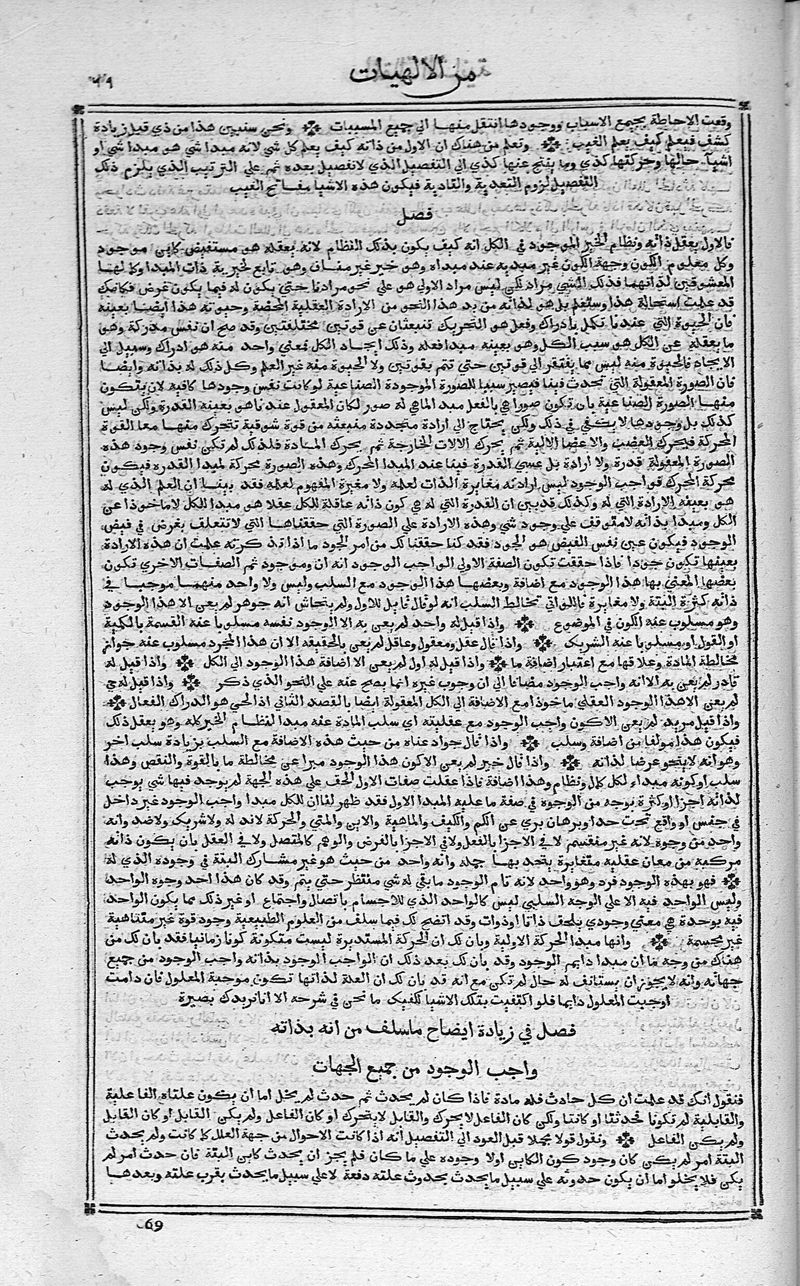 من الالهيات
٦٩
وقعت الاحاطة بجميع الاسباب ووجودها انتقل منها الي جميع المسببات ونحن سنبين هذا من ذي قبل زيادة
كشف فيعلم كيف يعلم الغيب وتعلم من هناك ان الاول من ذاته كيف يعلم كل شي لانه مبدا شي هو مبدا شي او
اشيا حالها وحركتها كذي وما ينتج عنها كذي الي التفصيل الذي لا تفصيل بعده ثم علي الترتيب الذي يلزم ذلك
التفصيل لزوم التعدية والتادية فيكون هذه الاشيا مفاتح الغيب
فصل
فالاول يعقل ذاته ونظام الخير الموجود في الكل انه كيف يكون بذلك النظام لانه يعقله هو مستفيض كاين موجود
وكل معلوم الكون وجهة الكون غير مبديه عند مبداه وهو خير غير مناف وهو تابع لخيرية ذات المبدا وكمالها
المعشوقين لذاتهما فذلك الشي مراد لكن ليس مراد الاول هو علي نحو مرادنا حتي يكون له فيما يكون غرض فكانك
قد علمت استحالة هذا وستعلم بل هو لذاته مريد هذا النحو من الارادة العقلية المحضة وحيوته هذا ايضا بعينه
فان الحيوة التي عندنا تكمل بادراك وفعل هو التحريك تنبعثان عن قوتين مختلفتين وقد صح ان نفس مدركة وهو
ما يعقله عن الكل هو سبب الكل وهو بعينه مبدا فعله وذلك ايجاد الكل فمعني واحد منه هو ادراك وسبيل الي
الايجاد فالحيوة منه ليس مما يفتقر الي قوتين حتي تتم بقوتين ولا الحيوة منه غير العلم وكل ذلك له بذاته وايضا
فان الصورة المعقولة التي تحدث فينا فيصير سببا للصورة الموجودة الصناعية لو كانت نفس وجودها كافية لان يتكون
منها الصورة الصناعية بان تكون صورا هي بالفعل مبد الما هي له صور لكان المعقول عندنا هو بعينه القدرة ولكن ليس
كذلك بل وجودها لا يكفي في ذلك ولكن يحتاج الي ارادة متجددة منبعثة من قوة شوقية تتحرك منهما معا القوة
المحركة فيحرك العصب والاعضا الالية ثم يحرك الالات الخارجة ثم يحرك المادة فلذلك لم تكن نفس وجود هذه
الصورة المعقولة قدرة ولا ارادة بل عسي القدرة فينا عند المبدا المحرك وهذه الصورة محركة لمبدا القدرة فيكون
محركة المحرك فواجب الوجود ليس ارادته مغايرة الذات لعلمه ولا مغيرة المفهوم لعلمه فقد بينا ان العلم الذي له
هو بعينه الارادة التي له وكذلك قد بين ان القدرة التي له هي كون ذاته عاقلة للكل عقلا هو مبدا للكل لا ماخوذا عن
الكل ومبدا بذاته لا متوقف علي وجود شي وهذه الارادة علي الصورة التي حققناها التي لا تتعلف بغرض في فيض
الوجود فيكون عين نفس الفيض هو الجود فقد كنا حققنا لك من امر الجود ما اذا تذكرته علمت ان هذه الارادة
بعينها تكون جودا فاذا حققت تكون الصفة الاولي لواجب الوجود انه ان وموجود ثم الصفات الاخري تكون
بعضها المعني بها هذا الوجود مع اضافة وبعضها هذا الوجود مع السلب وليس ولا واحد منهما موجبا في
ذاته كثرة البتة ولا مغايرة فاللواتي تخالط السلب انه لو قال قايل للاول ولم يتحاش انه جوهر لم يعن الا هذا الوجود
وهو مسلوب عنه الكون في الموضوع واذا قيل له واحد لم يعن به الا الوجود نفسه مسلوبا عنه القسمة بالكمية
او القول او مسلوبا عنه الشريك واذا قال عقل ومعقول وعاقل لم يعن بالحقيقه الا ان هذا المجرد مسلوب عنه جواز
مخالطة المادة وعلايقها مع اعتبار اضافة ما واذا قيل له اول لم يعن الا اضافة هذا الوجود الي الكل واذا قيل له
قادر لم يعن به الا انه واجب الوجود مضافا الي ان وجوب غيره انما يصح عنه علي النحو الذي ذكر واذا قيل له حي
لم يعن الا هذا الوجود العقلي ماخوذا مع الاضافة الي الكل المعقولة ايضا بالقصد الثاني اذ الحي هو الدراك الفعال
واذا قيل مريد لم يعن الا كون واجب الوجود مع عقليته اي سلب المادة عنه مبدا لنظام الخير كله وهو يعقل ذلك
فيكون هذا مولفا من اضافة وسلب واذا قال جواد عناه من حيث هذه الاضافة مع السلب بزيادة سلب اخر
وهو انه لا ينحو عرضا لذاته واذا قال خير لم يعن الا كون هذا الوجود مبرا عن مخالطة ما بالقوة والنقص وهذا
سلب او كونه مبداء لكل كمال ونظام وهذا اضافة فاذا عقلت صفات الاول الحف علي هذه الجهة لم يوجد فيها شي يوجب
لذاته اجزا او كثرة بوجه من الوجوه في صفة ما عليه المبدا الاول فقد ظهر لنا ان للكل مبدا واجب الوجود غير داخل
في جنس او واقع تحت حد او برهان بري عن الكم والكيف والماهية والاين والمتي والحركة لا ند له ولا شريك ولا ضد وانه
واحد من وجوه لانه غير منقسم لا في الاجزا بالفعل ولا في الاجزا بالفرض والوهم كالمتصل ولا في العقل بان يكون ذاته
مركبه من معان عقلية متغايرة يتحد بها جمله وانه واحد من حيث هو غير مشارك البتة في وجوده الذي له
فهو بهذه الوجود فرد وهو واحد لانه تام الوجود ما بقي له شي منتظر حتي يتم وقد كان هذا احد وجوه الواحد
وليس الواحد فيه الا علي الوجه السلبي ليس كالواحد الذي للاجسام باتصال واجتماع او غير ذلك مما يكون الواحد
فيه بوحدة هي معني وجودي يلحف ذاتا او ذوات وقد اتضح لك فيما سلف من العلوم الطبيعية وجود قوة غير متناهية
غير مجسمة وانها مبدا الحركة الاولية وبان لك ان الحركة المستديرة ليست متكونة كونا زمانيا فقد بان لك من
هناك من وجه ما ان مبدا دايم الوجود وقد بان لك بعد ذلك ان الواجب الوجود بذاته واجب الوجود من جميع
جهاته وانه لا يجوز ان يستانف له حال لم تكن مع انه قد بان لك ان العلة لذاتها تكون موجبة المعلول فان دامت
اوجبت المعلول دايما فلو اكتفيت بتلك الاشيا لكفيك ما نحن في شرحه الا انا نزيدك بصيرة
فصل في زيادة ايضاح ما سلف من انه بذاته
واجب الوجود من جميع الجهات
فنقول انك قد علمت ان كل حادث فله مادة فاذا كان لم يحدث ثم حدث لم يخل اما ان يكون علتاه الفاعلية
والقابلية لم تكونا فحدثتا او كانتا ولكن كان الفاعل لا يحرك والقابل لا يتحرك او كان الفاعل ولم يكن القابل او كان القابل
ولم يكن الفاعل ونقول قولا مجملا قبل العود الي التفصيل انه اذا كانت الاحوال من جهة العلل كما كانت ولم يحدث
البتة امر لم يكن كان وجود كون الكاين اولا وجوده علي ما كان فلم يجز ان يحدث كاين البتة فان حدث امر لم
يكن فلا يخلو اما ان يكون حدوثه علي سبيل ما يحدث بحدوث علته دفعة لا علي سبيل ما يحدث بقرب علته وبعدها
69